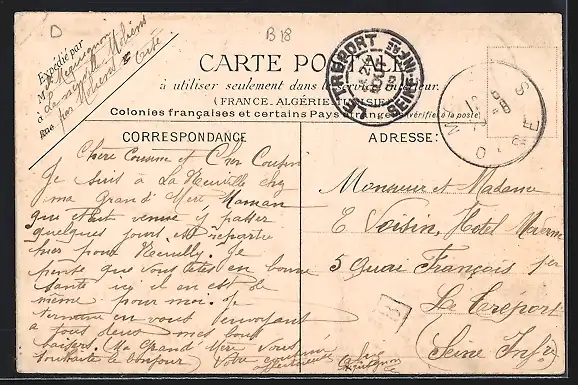 B18
Expédié par
M
à La
Rue
CARTE POSTALE
à utiliser seulement dans le service intérieur.
(FRANCE, ALGÉRIE, TUNISIE)
Colonies françaises et certains Pays étrangers (vérifiés à la poste)
LE TREPORT
SEINE INFRE
CORRESPONDANCE
ADRESSE:
Chère Cousine et Cher Cousin
Je suis à La Neuville chez
ma Grand' Mère Maman
qui était venue y passer
quelques jours est repartie
hier pour Neuilly. Je
pense que vous êtes en bonne
santé ici il en est de
même pour moi. Je
termine en vous envoyant
à tous deux mes bons
baisers. Ma Grand' Mère vous
souhaite le bonjour. Votre cousine
affectueuse
Monsieur et Madame
E Voisin, Hotel Moderne
5 Quai François 1er
Le Tréport
(Seine Infre)